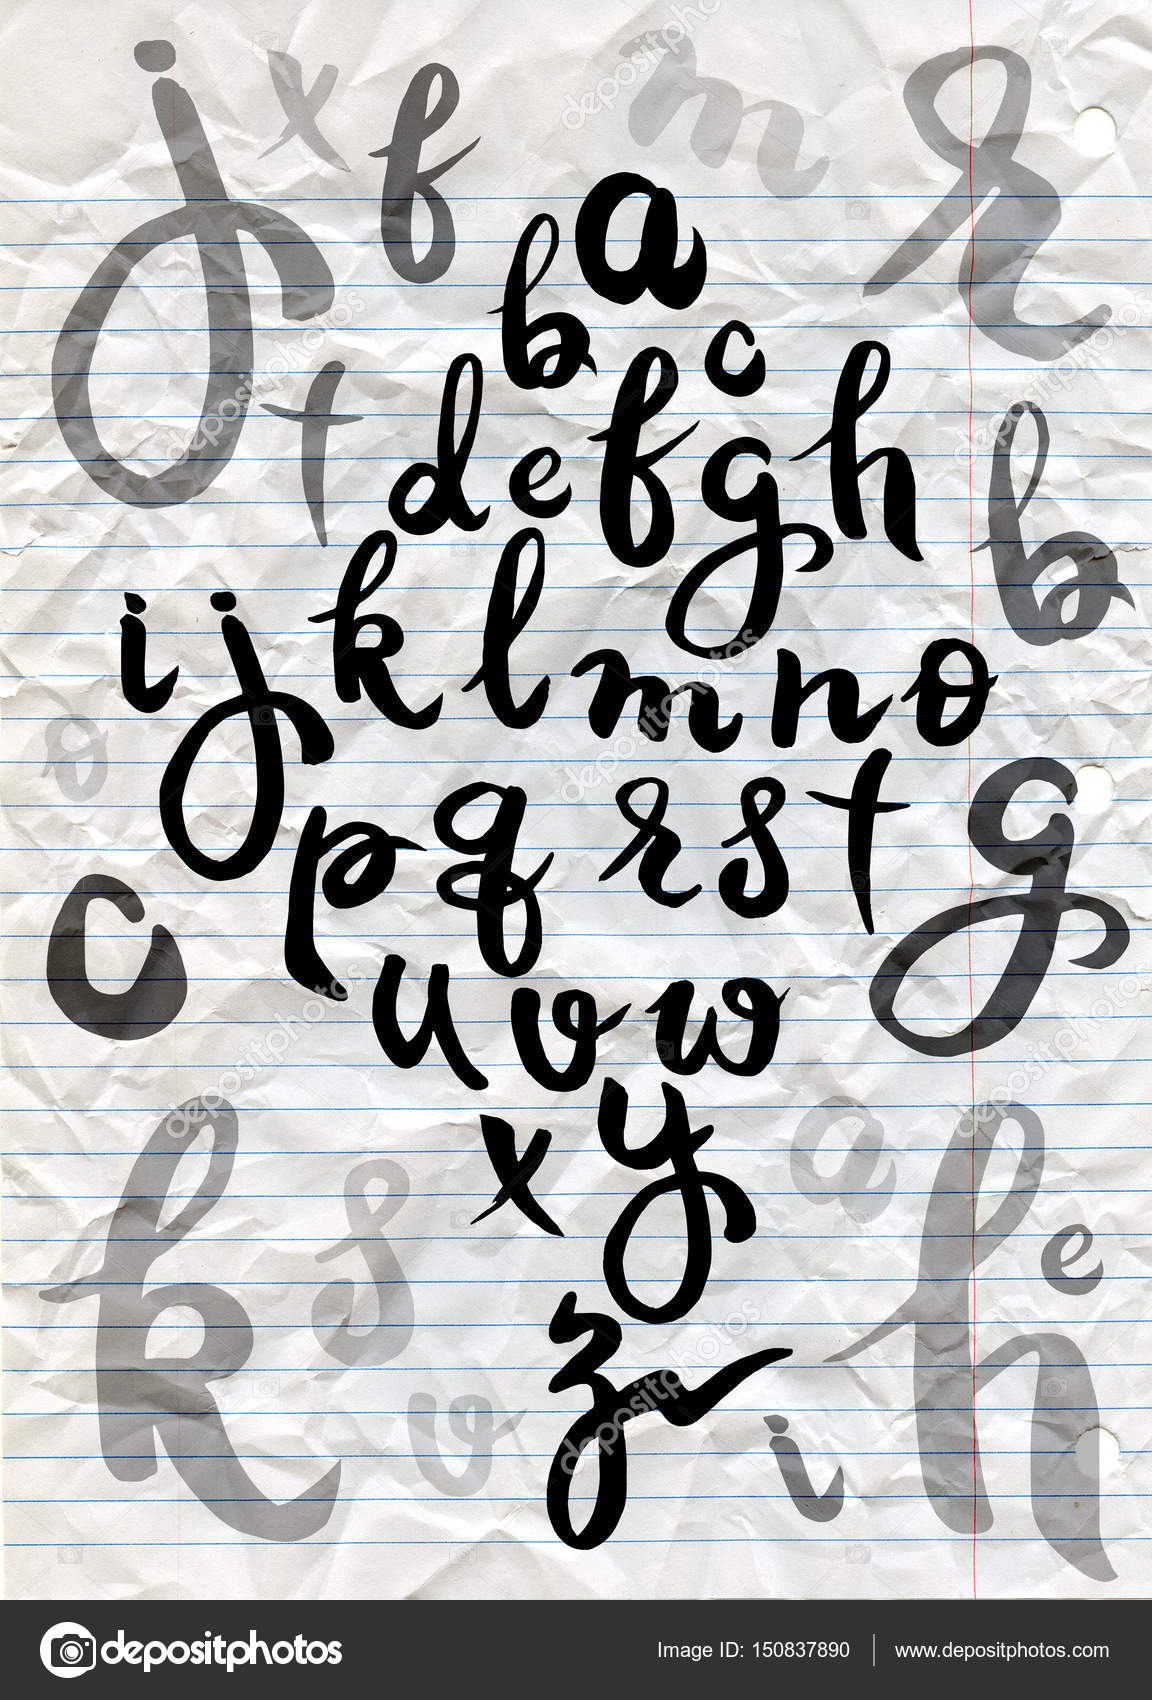 j x f m r
a
b c
t d e f g h b
i j k l m n o
o p q r s t g
c u v w
k s x y a h e
v z i
depositphotos
Image ID: 150837890 www.depositphotos.com